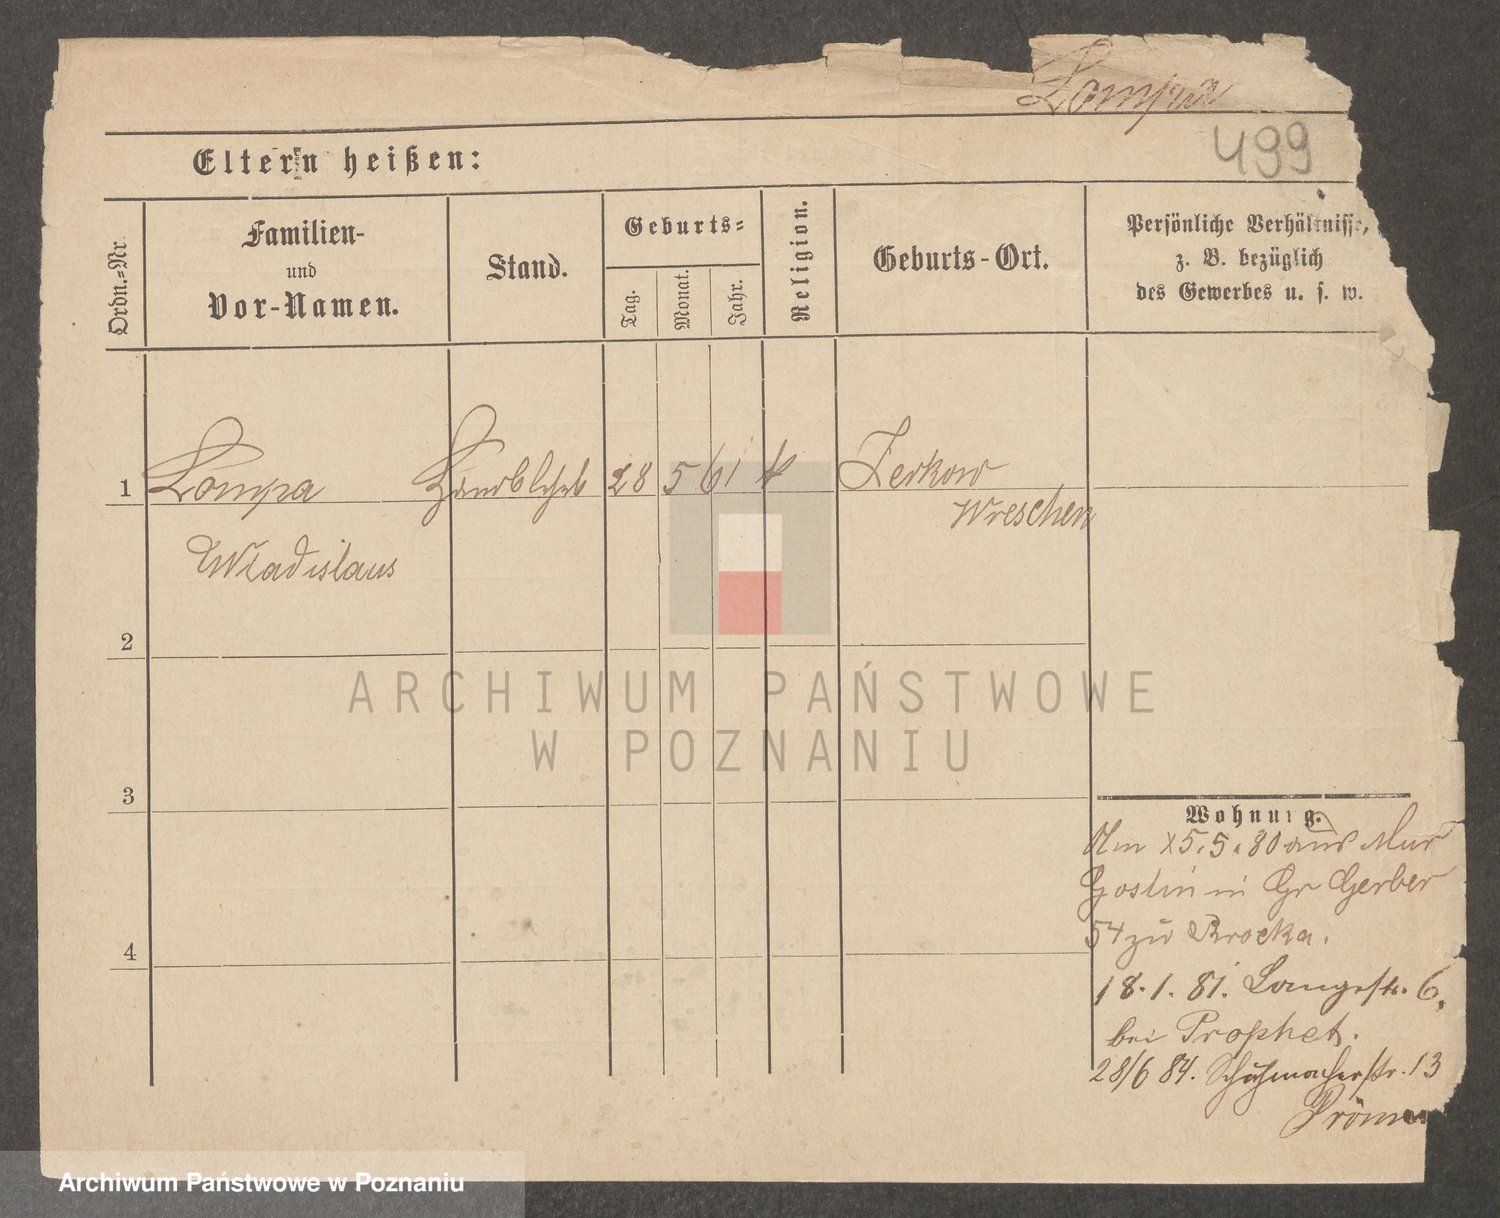 Lompa
499
Eltern heißen:
Ordn.=Nr.
Familien-
und
Vor-Namen.
Stand.
Geburts=
Tag.
Monat.
Jahr.
Religion.
Geburts-Ort.
Persönliche Verhältnisse,
z. B. bezüglich
des Gewerbes u. s. w.
1 Lompa 28 5 61 k Zerkow
Wreschen
Wladislaus
2
3
4
Wohnung.
Am 5.5.80 aus Mur
Goslin in Gr Gerber
54 zu Brocka.
18.1.81. Langestr. 6.
bei Prophet.
28/6 84. Schuhmacherstr. 13
ARCHIWUM PAŃSTWOWE
W POZNANIU
Archiwum Państwowe w Poznaniu